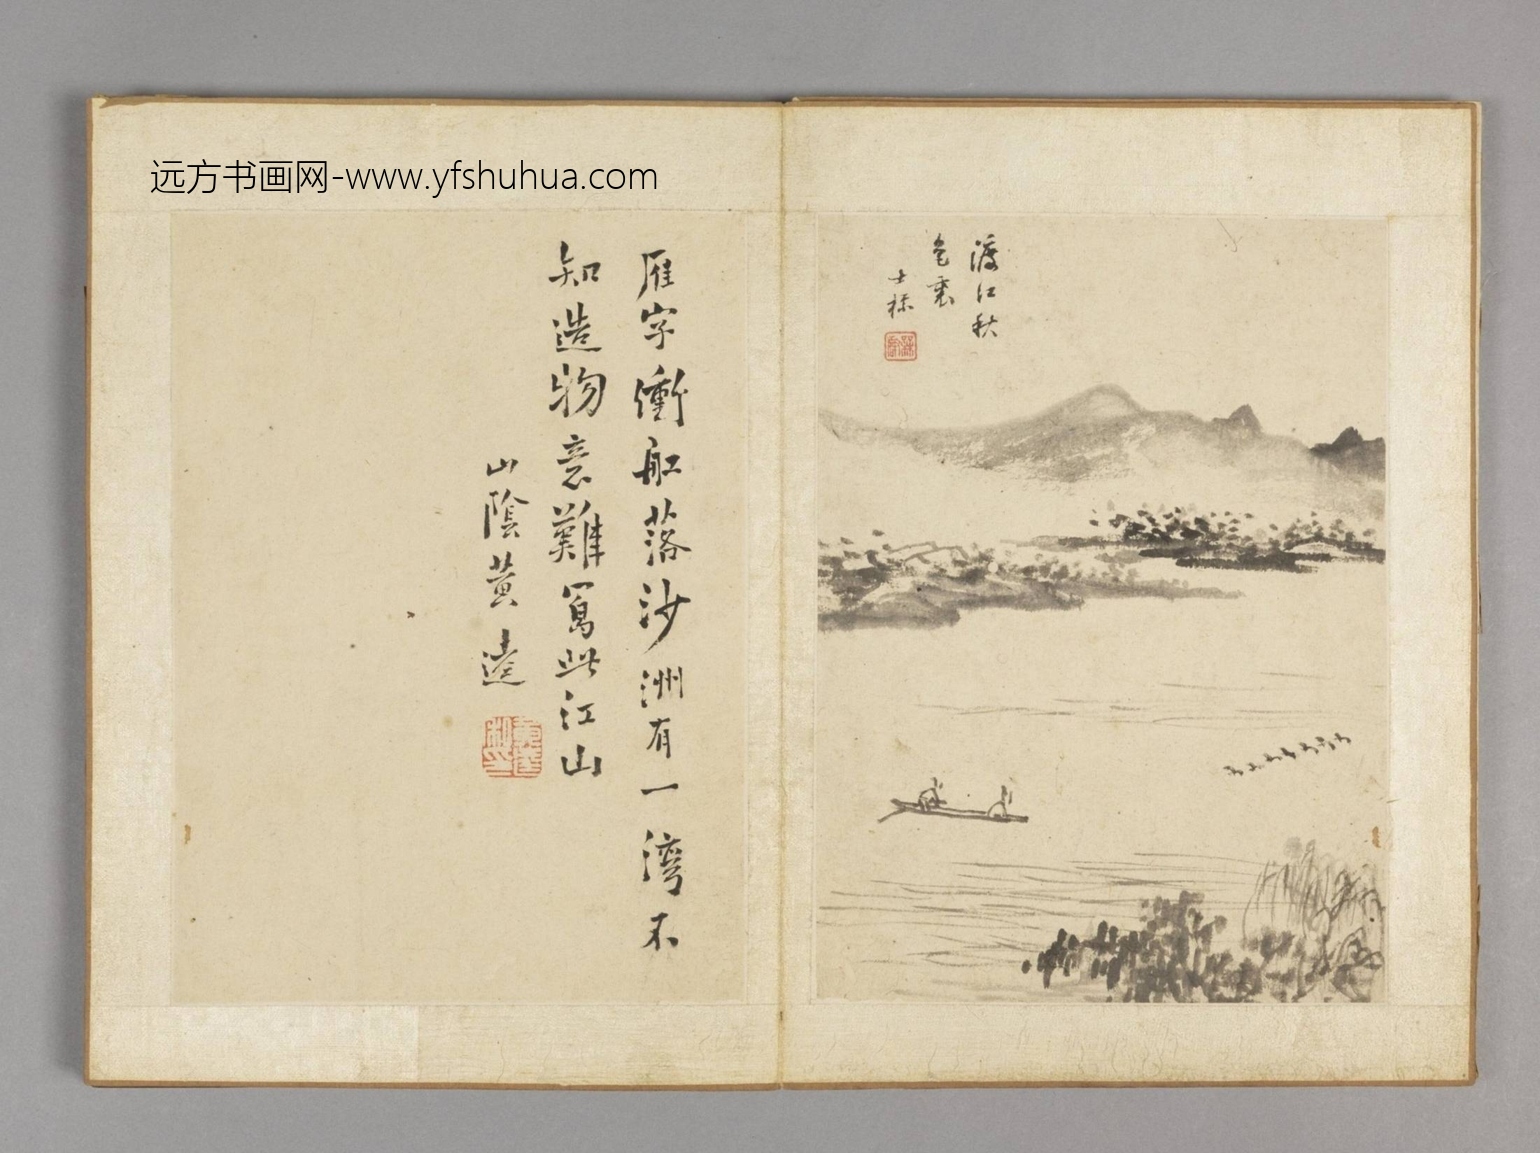 远方书画网-www.yfshuhua.com
渡江秋
色裏
士標
雁字衝舡落沙洲有一湾不
知造物意難冩此江山
山陰黄逵